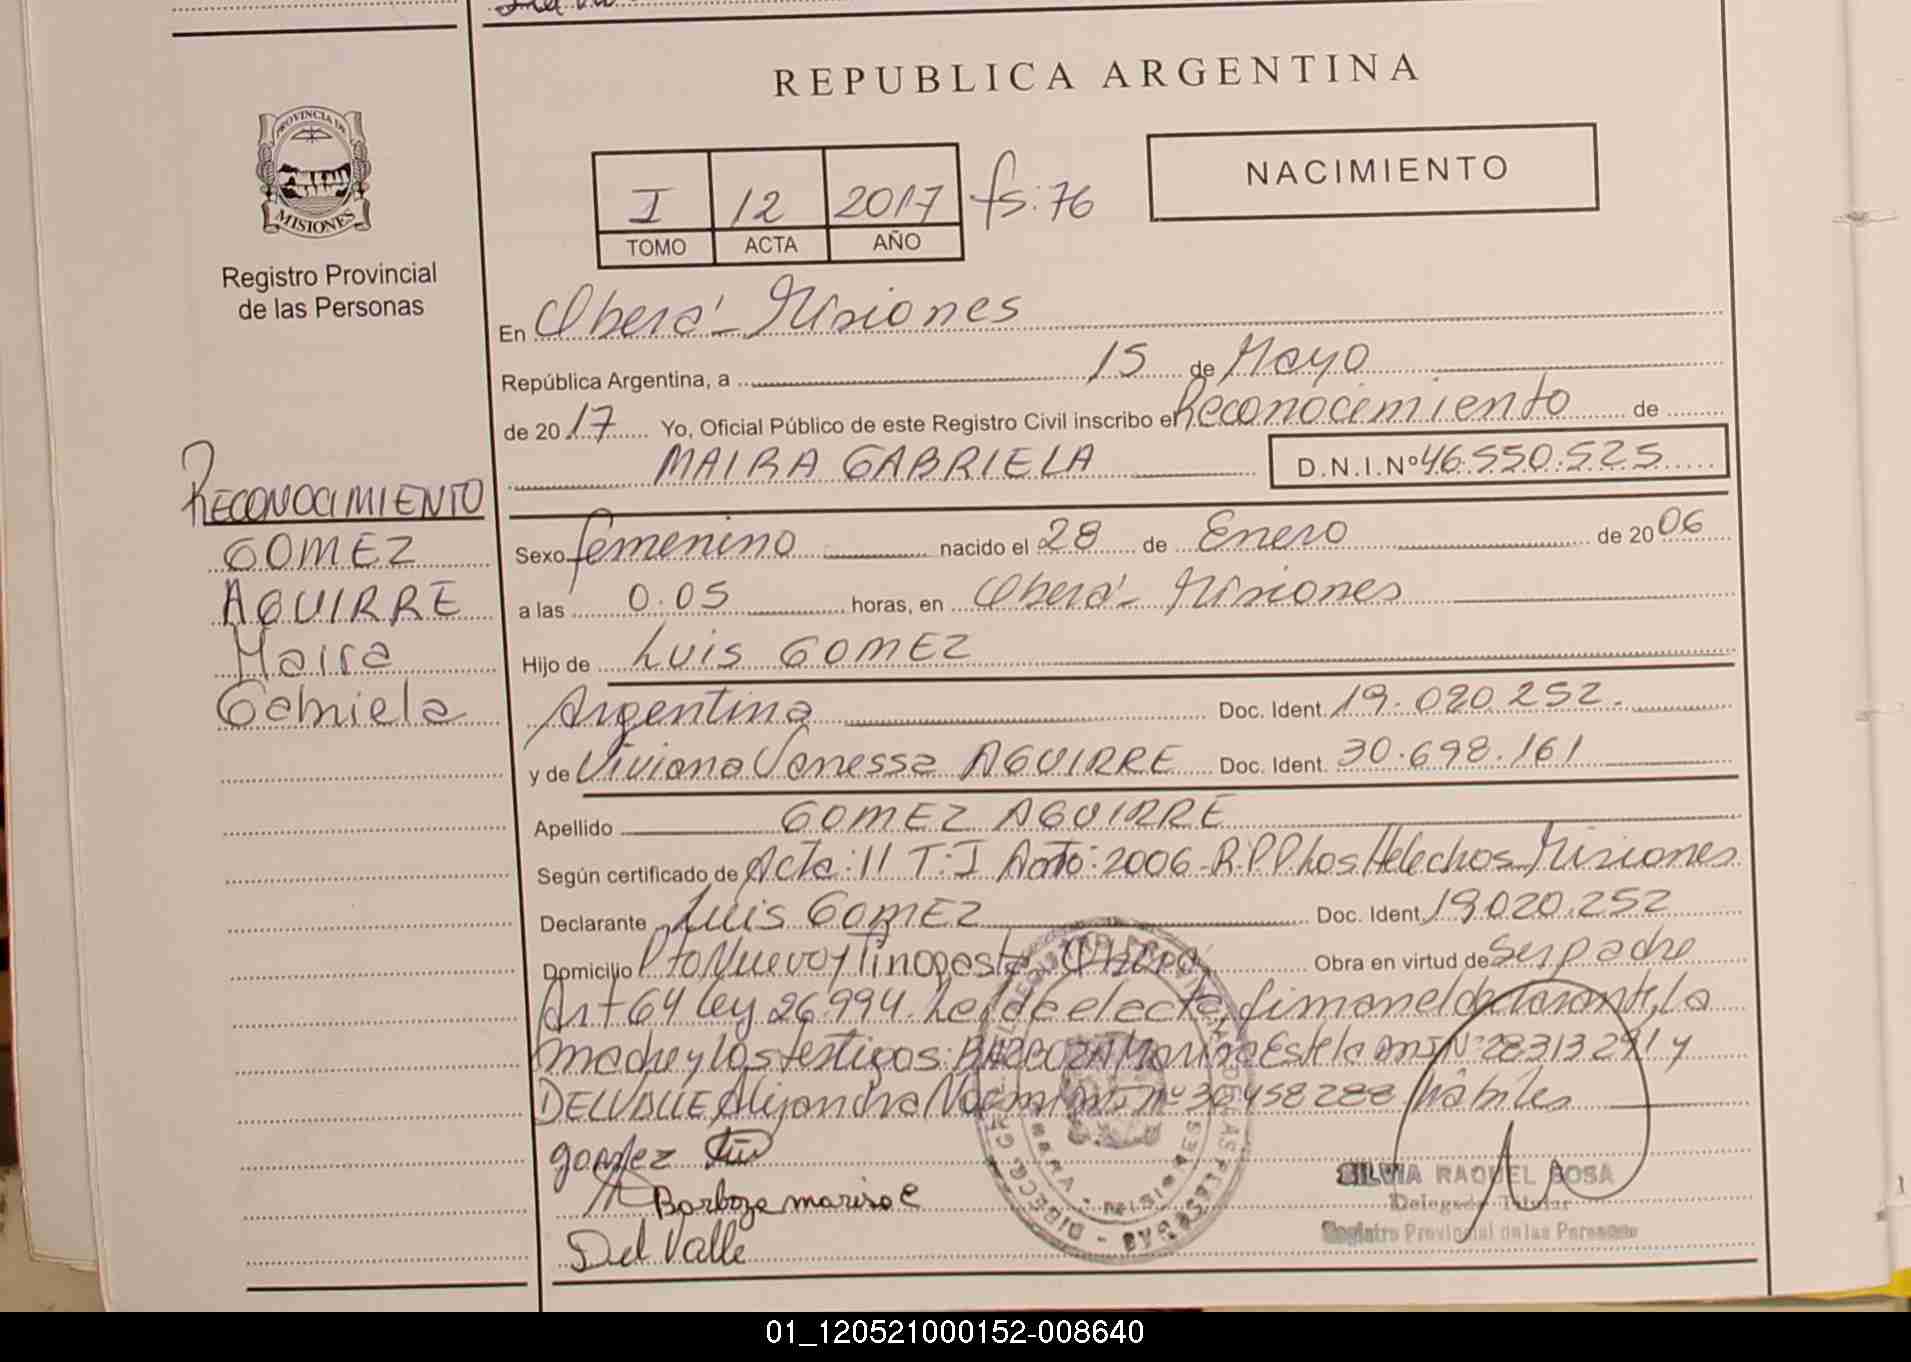 REPUBLICA ARGENTINA
PROVINCIA DE
MISIONES
Registro Provincial
de las Personas
NACIMIENTO
I 12 2017 fs: 76
TOMO ACTA AÑO
En Oberá - Misiones
República Argentina, a 15 de Mayo
de 2017 Yo, Oficial Público de este Registro Civil inscribo el Reconocimiento de
MAIRA GABRIELA D.N.I.Nº 46.550.525
RECONOCIMIENTO
GOMEZ
AGUIRRE
Maira
Gabriela
Sexo femenino nacido el 28 de Enero de 2006
a las 0.05 horas, en Oberá - Misiones
Hijo de Luis GOMEZ
Argentina Doc. Ident. 19.020.252.
y de Viviana Vanessa AGUIRRE Doc. Ident. 30.698.161
Apellido GOMEZ AGUIRRE
Según certificado de Acta: 11 T: I Año: 2006 - R.P.P. Los Helechos Misiones
Declarante Luis GOMEZ Doc. Ident. 19020.252
Domicilio Pto Nuevo y Oberá Obra en virtud de Ser padre
Art 64 Ley 26.994. Leída el acta, firman el declarante, la
madre y los testigos: BARBOZA Estela DNI Nº 28313291 y
DELVALLE Alejandra Noemi Nº 36458288 hábiles
gomez
Barboza
Del Valle
SILVIA RAQUEL SOSA
Delegada Titular
Registro Provincial de las Personas
01_120521000152-008640